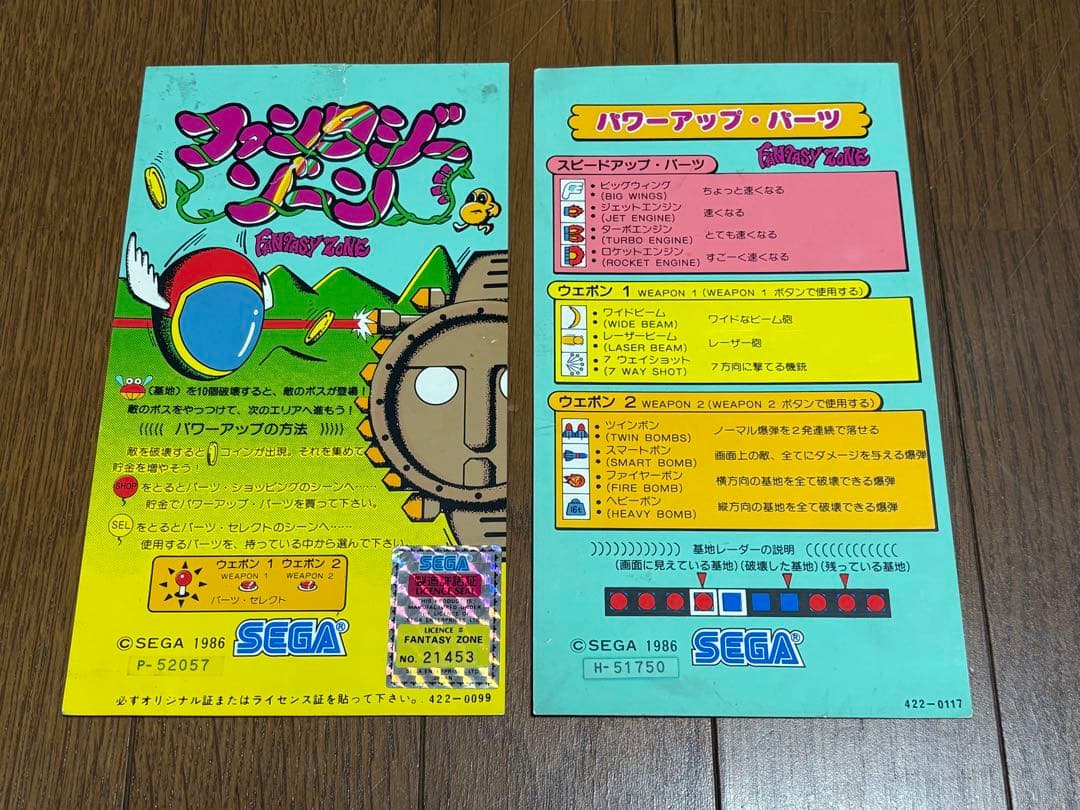 ファンタジーゾーン
FANTASY ZONE
(基地)を10個破壊すると、敵のボスが登場!
敵のボスをやっつけて、次のエリアへ進もう!
((((( パワーアップの方法 )))))
敵を破壊するとコインが出現。それを集めて
貯金を増やそう!
SHOP をとるとパーツ・ショッピングのシーンへ……
貯金でパワーアップ・パーツを買って下さい。
SEL をとるとパーツ・セレクトのシーンへ……
使用するパーツを、持っている中から選んで下さい。
ウェポン 1 ウェポン 2
WEAPON 1 WEAPON 2
パーツ・セレクト
©SEGA 1986 SEGA®
P-52057
SEGA
製造許諾証
LICENCE SEAL
THIS PRODUCT IS
MANUFACTURED UNDER
THE LICENCE OF
SEGA ENTERPRISES LTD.
LICENCE #
FANTASY ZONE
NO. 21453
SEGA ENTERPRISES LTD.
必ずオリジナル証またはライセンス証を貼って下さい。 422-0099
パワーアップ・パーツ
FANTASY ZONE
スピードアップ・パーツ
・ビッグウィング ちょっと速くなる
(BIG WINGS)
・ジェットエンジン 速くなる
(JET ENGINE)
・ターボエンジン とても速くなる
(TURBO ENGINE)
・ロケットエンジン すごーく速くなる
(ROCKET ENGINE)
ウェポン 1 WEAPON 1 (WEAPON 1 ボタンで使用する)
・ワイドビーム ワイドなビーム砲
(WIDE BEAM)
・レーザービーム レーザー砲
(LASER BEAM)
・7 ウェイショット 7方向に撃てる機銃
(7 WAY SHOT)
ウェポン 2 WEAPON 2 (WEAPON 2 ボタンで使用する)
・ツインボン ノーマル爆弾を2発連続で落せる
(TWIN BOMBS)
・スマートボン 画面上の敵、全てにダメージを与える爆弾
(SMART BOMB)
・ファイヤーボン 横方向の基地を全て破壊できる爆弾
(FIRE BOMB)
16t.
・ヘビーボン 縦方向の基地を全て破壊できる爆弾
(HEAVY BOMB)
))))))))))) 基地レーダーの説明 (((((((((((
(画面に見えている基地)(破壊した基地)(残っている基地)
©SEGA 1986 SEGA®
H-51750
422-0117